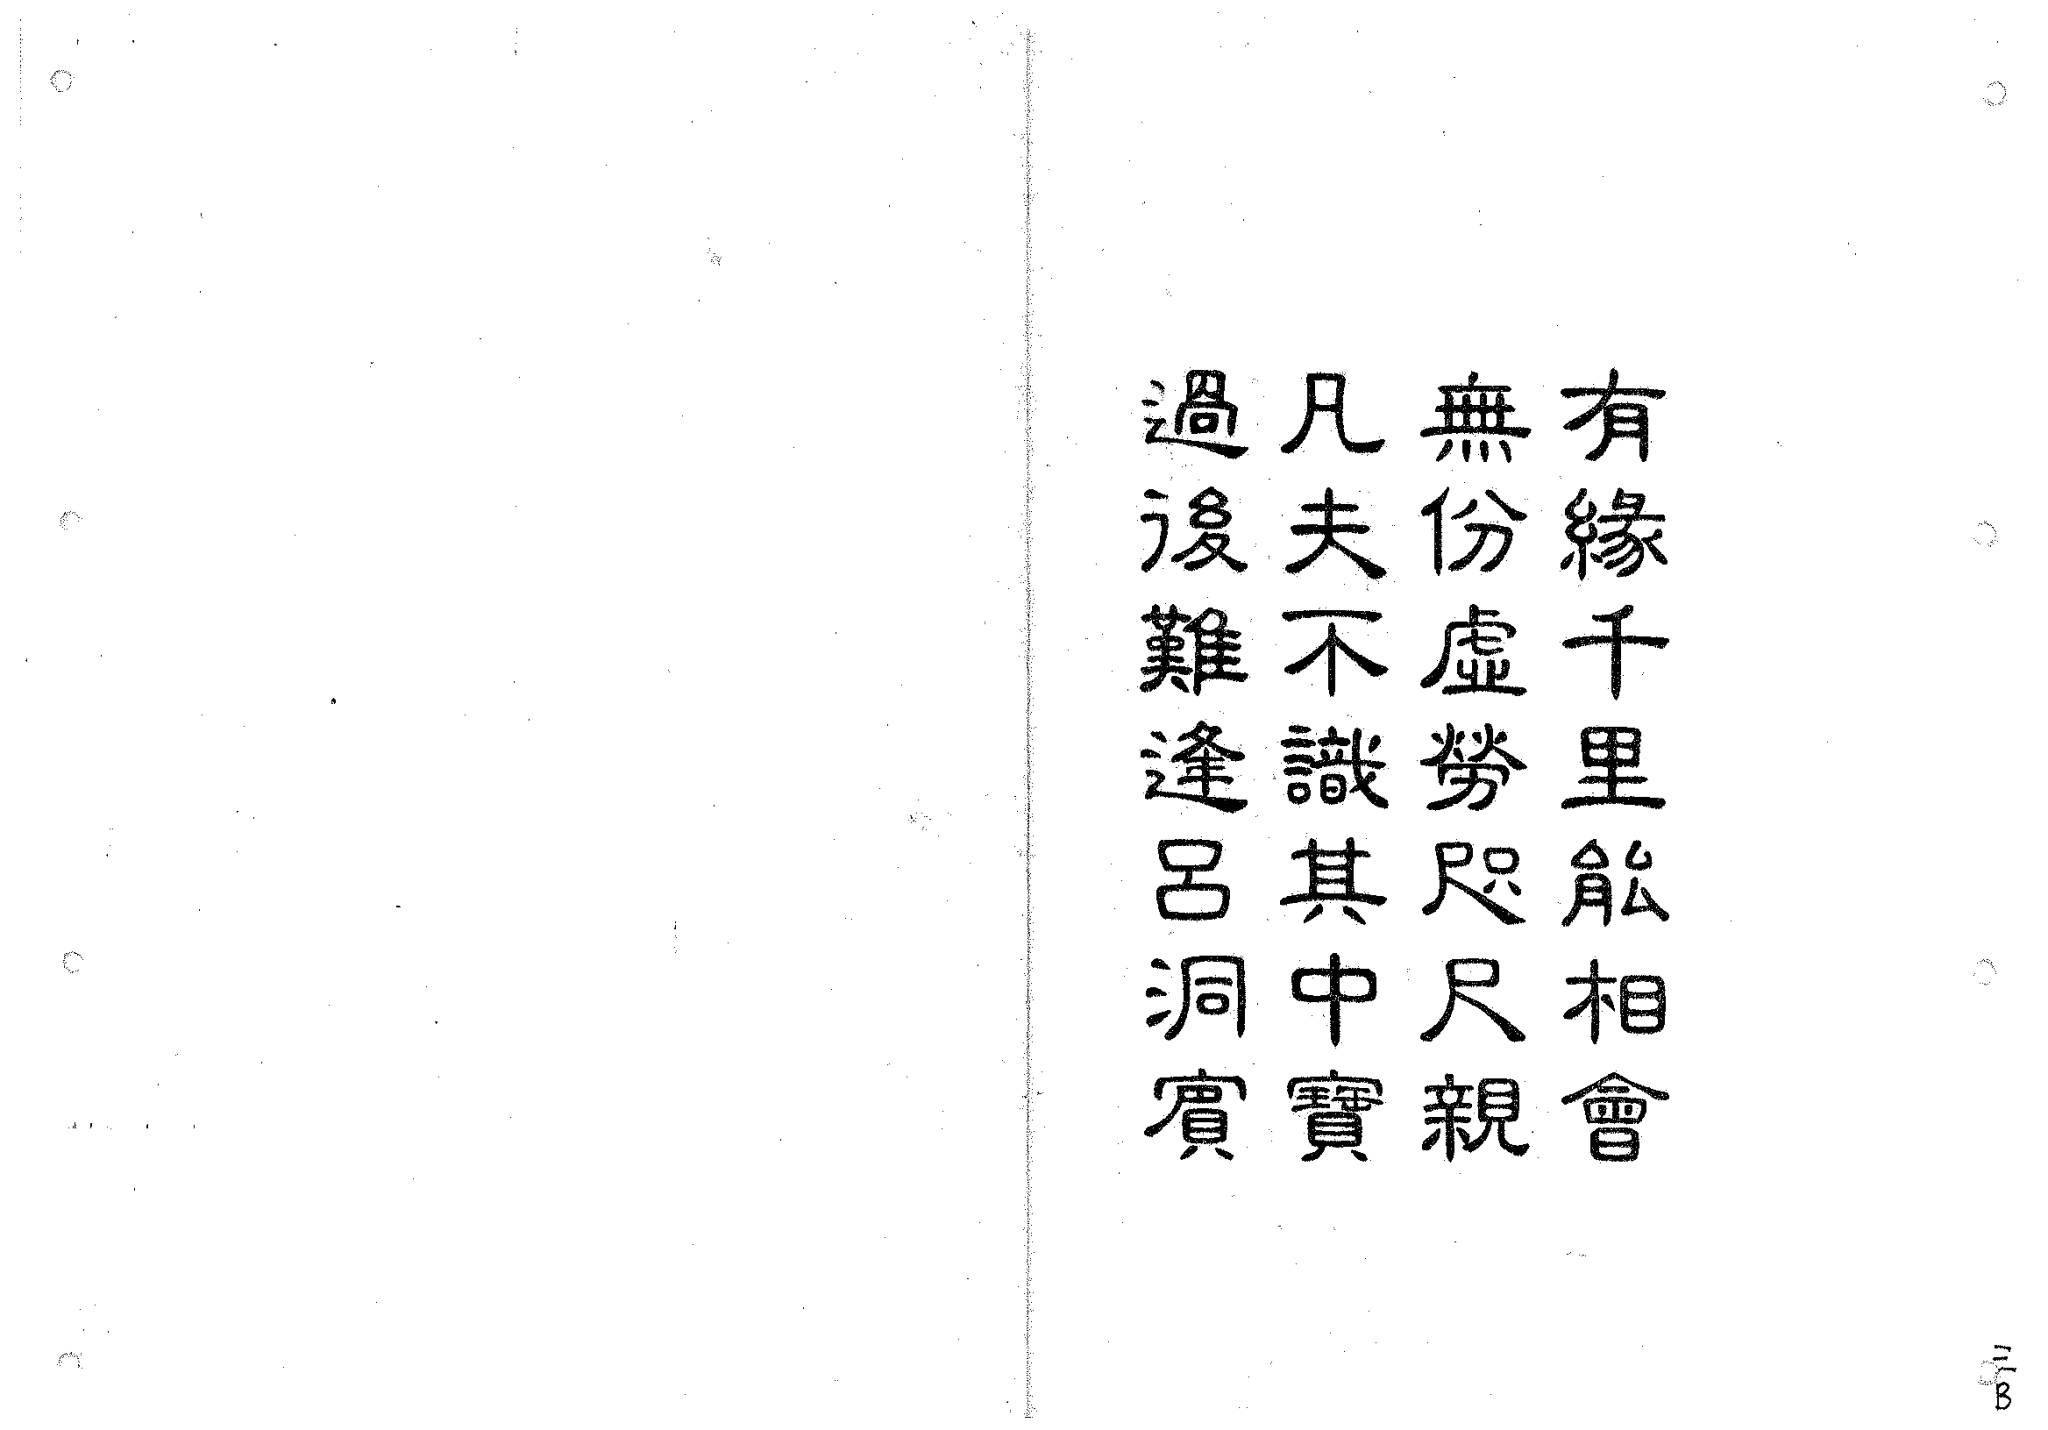 有緣千里能相會
無份虛勞咫尺親
凡夫不識其中寶
過後難逢呂洞賓
三B